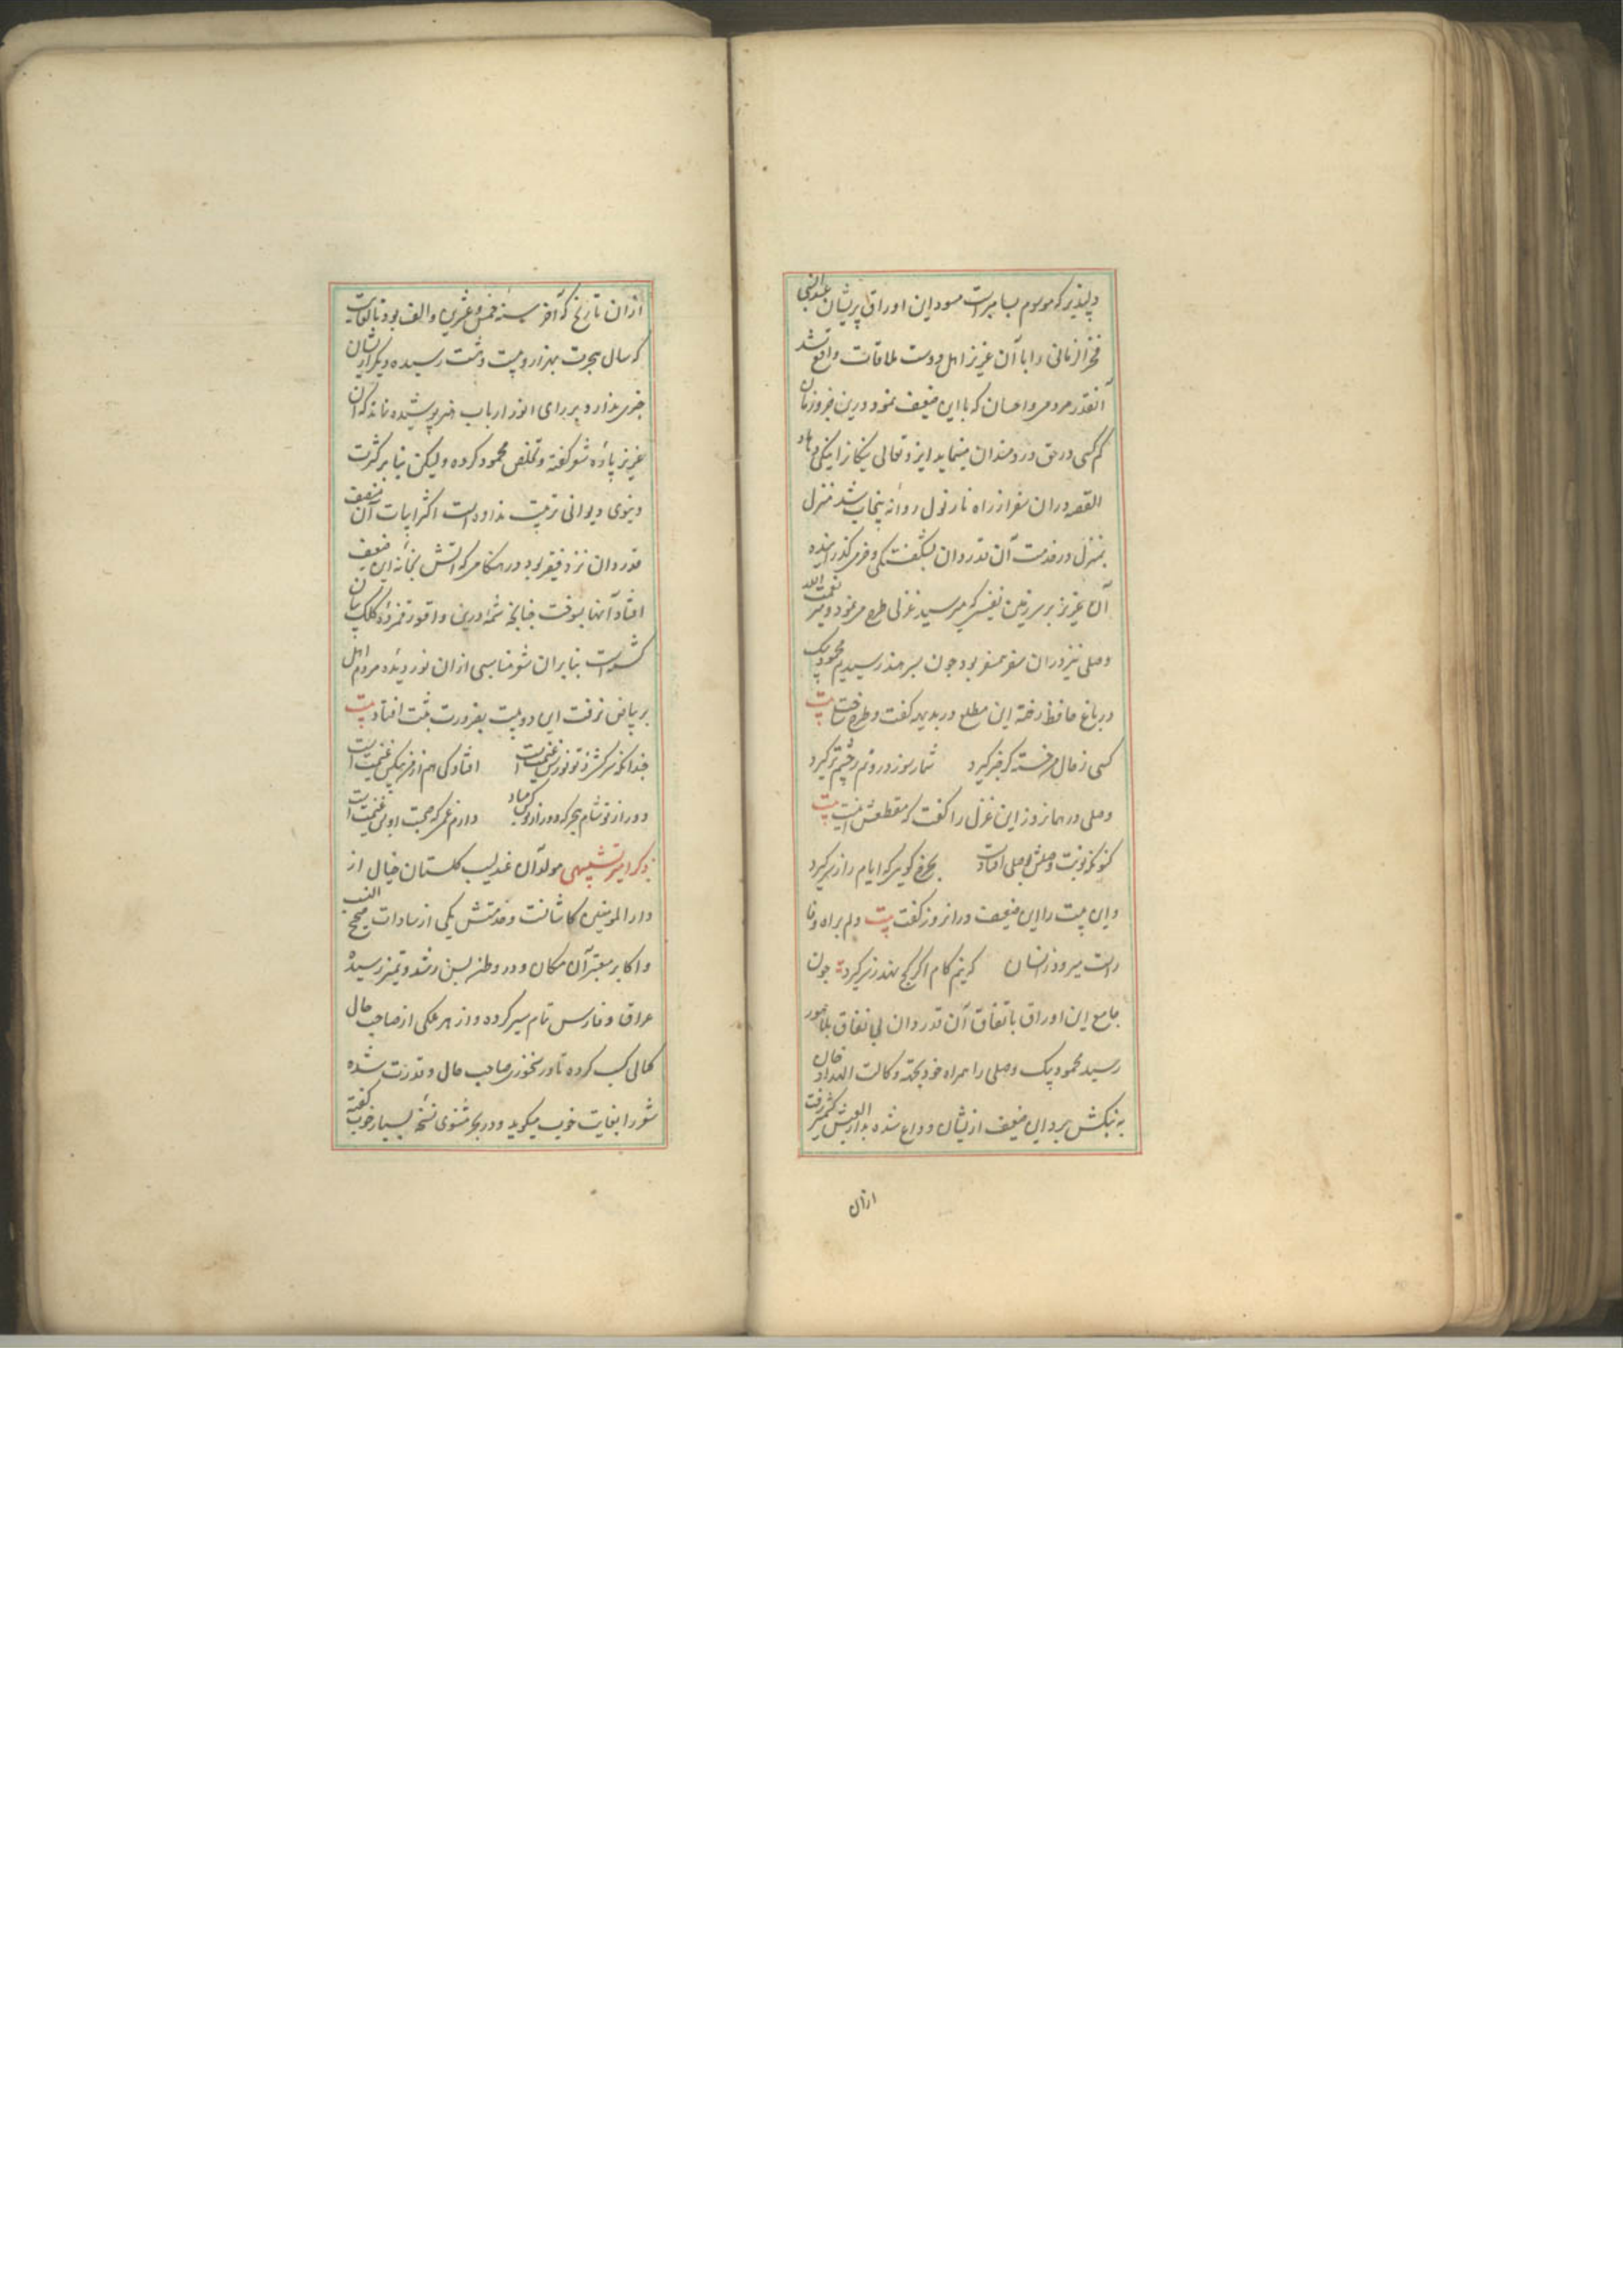 دلپذیر که موسوم بسامبر است مسود این اوراق پریشان عبدالنبی
فخرالزمانی را با آن عزیز اهل دوست ملاقات واقع شد
آنقدر مردمی و احسان که با این ضعیف نمود درین جزو زمان
کم کسی در حق دردمندان مینماید ایزد تعالی نیکانرا نیکی دهاد
القصه دران سفر از راه نارنول روانه پنجاب شد منزل
بمنزل در خدمت آن قدردان بشگفتگی و خرمی گذرانیده
آن عزیز بر سرزمین نفیس که میرسید غزلی طرح می نمود و میر نعمت الله
وصلی نیز دران سفر همسفر بود چون بسرهند رسیدیم محمود بیک
در باغ حافظ رخنه این مطلع در بدیهه گفت و طرح ساخت بیت
کسی ز حال من خسته کی خبر گیرد شمار سوز درونم ز چشم تر گیرد
وصلی در همانروز این غزل را گفت که مقطعش اینست بیت
کنونکه نوبت وصلش بوصلی افتادست بچرخ گوی که ایام را ز سر گیرد
و این بیت را این ضعیف در انروز گفت بیت دلم براه وفا
راست میرود زانسان که نیم گام اگر کج نهد ز سر گیرد چون
جامع این اوراق باتفاق آن قدردان بی نفاق بلاهور
رسید محمود بیک وصلی را همراه خود بجهة وکالت الهداد خان
به بنگش برد این ضعیف ازیشان وداع شده بدارالعیش کشمیر رفت
ازان
ازان تاریخ که آخر سنه خمس و عشرین و الف بود تا لغایت
که سال هجرت بهزار و بیست و هشت رسیده دیگر ازیشان
خبری ندارد بر رای انور ارباب هنر پوشیده نماند که آن
عزیز پاره شعر گفته و تخلص محمود کرده و لیکن بنا بر کثرت
دنیوی دیوانی ترتیب نداده است اکثر ابیات آن منصف
قدردان نزد فقیر بود در هنگامی که آتش بخانه این ضعیف
افتاد آنها بسوخت چنانچه شمه ازین واقعه رقمزده کلک بیان
گشته است بنابران شعر مناسبی ازان نور دیده مردم اهل
بر بیاض نرفت این دو بیت بضرورت ثبت افتاد بیت
چندانکه سرکشی ز تو نورس غنیمت است افتادگی هم از من بیکس غنیمت است
دور از تو شام هجر که دور از تو کس مباد دارم غمی که صحبت او بس غنیمت است
ذکر امیر تشبیهی مولد آن عندلیب گلستان خیال از
دارالمومنین کاشانست و خدمتش یکی از سادات صحیح النسب
و اکابر معتبر آن مکان و در وطن بسن رشد و تمیز رسیده
عراق و فارس تمام سیر کرده و از هر ملکی از صاحب حال
کمالی کسب کرده تا در سخنوری صاحب حال و قدرت شده
شعر را بغایت خوب میگوید و در بحر مثنوی نسخه بسیار خوب گفته